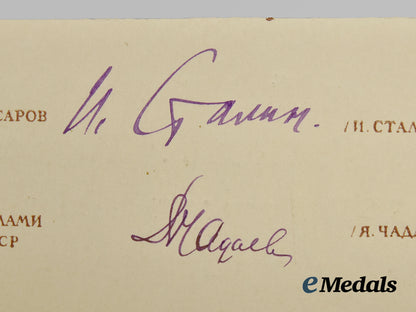 САРОВ И. Сталин. /И. СТАЛ
ЛАМИ
СР ЯЧадаев /Я. ЧАДА
eMedals